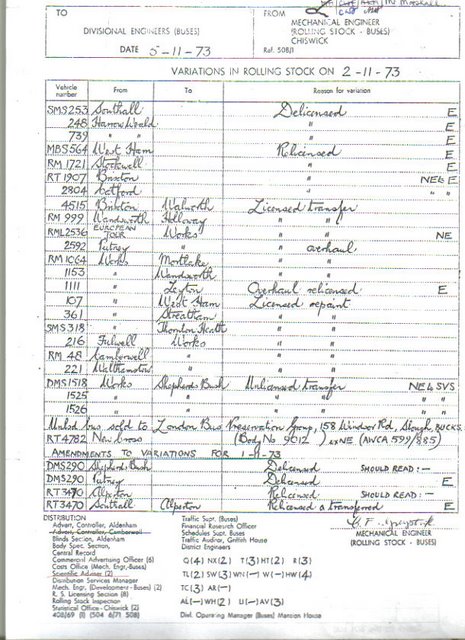 Mr Marshall
TO
FROM
MECHANICAL ENGINEER
(ROLLING STOCK - BUSES)
CHISWICK
DIVISIONAL ENGINEERS (BUSES)
DATE 5-11-73
Ref. 508/1
VARIATIONS IN ROLLING STOCK ON 2-11-73
Vehicle number From To Reason for variation
SMS253 Southall Delicensed E
248 Harrow Weald " E
739 " " " E
MBS564 West Ham Relicensed E
RM 1721 Stockwell " E
RT 1907 Brixton " NE& E
2804 Catford " " "
4515 Brixton Walworth Licensed transfer
RM 999 Wandsworth Holloway " "
RML2536 EUROPEAN TOUR Works " " NE
2592 Putney " " overhaul
RM 1064 Works Mortlake " "
1153 " Wandsworth " "
1111 " Leyton Overhaul relicensed E
107 " West Ham Licensed repaint
361 " Streatham " "
SMS 318 " Thornton Heath " "
216 Fulwell Works " "
RM 48 Camberwell " " "
221 Walthamstow " " "
DMS1518 Works Shepherds Bush Unlicensed transfer NE& SVS
1525 " " " " " "
1526 " " " " " "
Unlsd bus sold to London Bus Preservation Group, 158 Windsor Rd, Slough, BUCKS
RT4782 New Cross (Body No 9012) ex NE (AWCA 599/885)
AMENDMENTS TO VARIATIONS FOR 1-11-73
DMS290 Shepherds Bush Delicensed SHOULD READ:-
DMS290 Putney Delicensed E
RT3470 Alperton Relicensed SHOULD READ:-
RT3470 Southall Alperton Relicensed & transferred E
DISTRIBUTION
Advert. Controller, Aldenham
Advert. Controller, Camberwell
Blinds Section, Aldenham
Body Spd. Section,
Central Record
Commercial Advertising Officer (6)
Costs Office (Mech. Engr.-Buses)
Scientific Adviser (2)
Distribution Services Manager
Mech. Engr. (Development - Buses) (2)
R. S. Licensing Section (8)
Rolling Stock Inspection
Statistical Office - Chiswick (2)
408/69 (1) (504 6/71 508)
Traffic Supt. (Buses)
Financial Research Officer
Schedules Supt. Buses
Traffic Auditor, Griffith House
District Engineers
Q(4) NX(2) T(3) HT(2) R(3)
TL(2) SW(3) WN(—) W(—) HW(4)
TC(3) AR(—)
AL(—) WH(2) LI(—) AV(3)
Divl. Operating Manager (Buses) Mansion House
MECHANICAL ENGINEER
(ROLLING STOCK - BUSES)